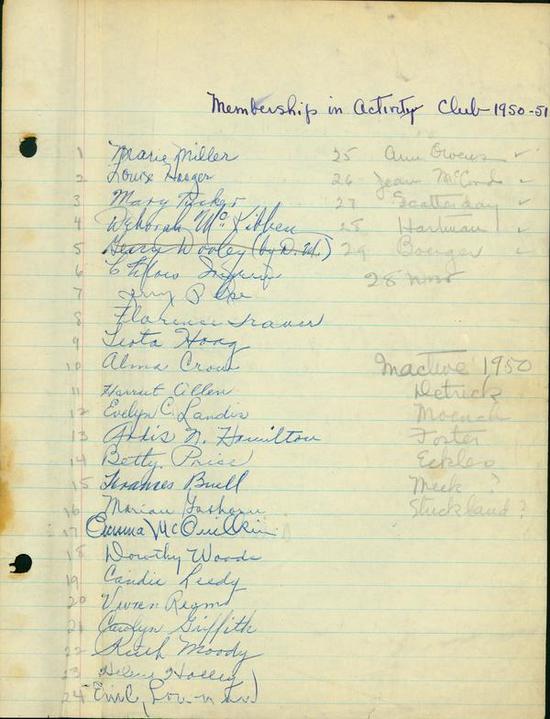 Membership in Activity Club-1950-51
1 Marie Miller
2 Louise
3 Mary
4 Deborah McKibben
5 Henry Wooley (by D. M.)
6
7 Jerry
8 Florence Traver
9 Hoag
10 Alma Crow
11 Harriet Allen
12 Evelyn C. Landis
13 N. Hamilton
14 Betty Price
15 Frances Buell
16 Marian
17 Emma McQuilkin
18 Dorothy Woods
19 Candie Leedy
20 Vivian
21 Carolyn Griffith
22 Ruth Moody
23
24
25 Ann Owens ✓
26 Jean McCord ✓
27 Scatterday ✓
28 Hartman ✓
29 Boerger ✓
28
Inactive 1950
Detrick
Moench
Foster
Eckles
Meek ?
Stuckland ?